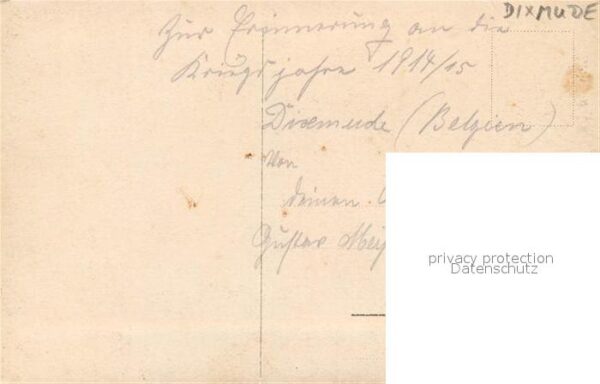 DIXMUDE
Zur Erinnerung an die
Kriegsjahre 1914/15
Dixmude (Belgien)
Von
deinen
Gustav
privacy protection
Datenschutz